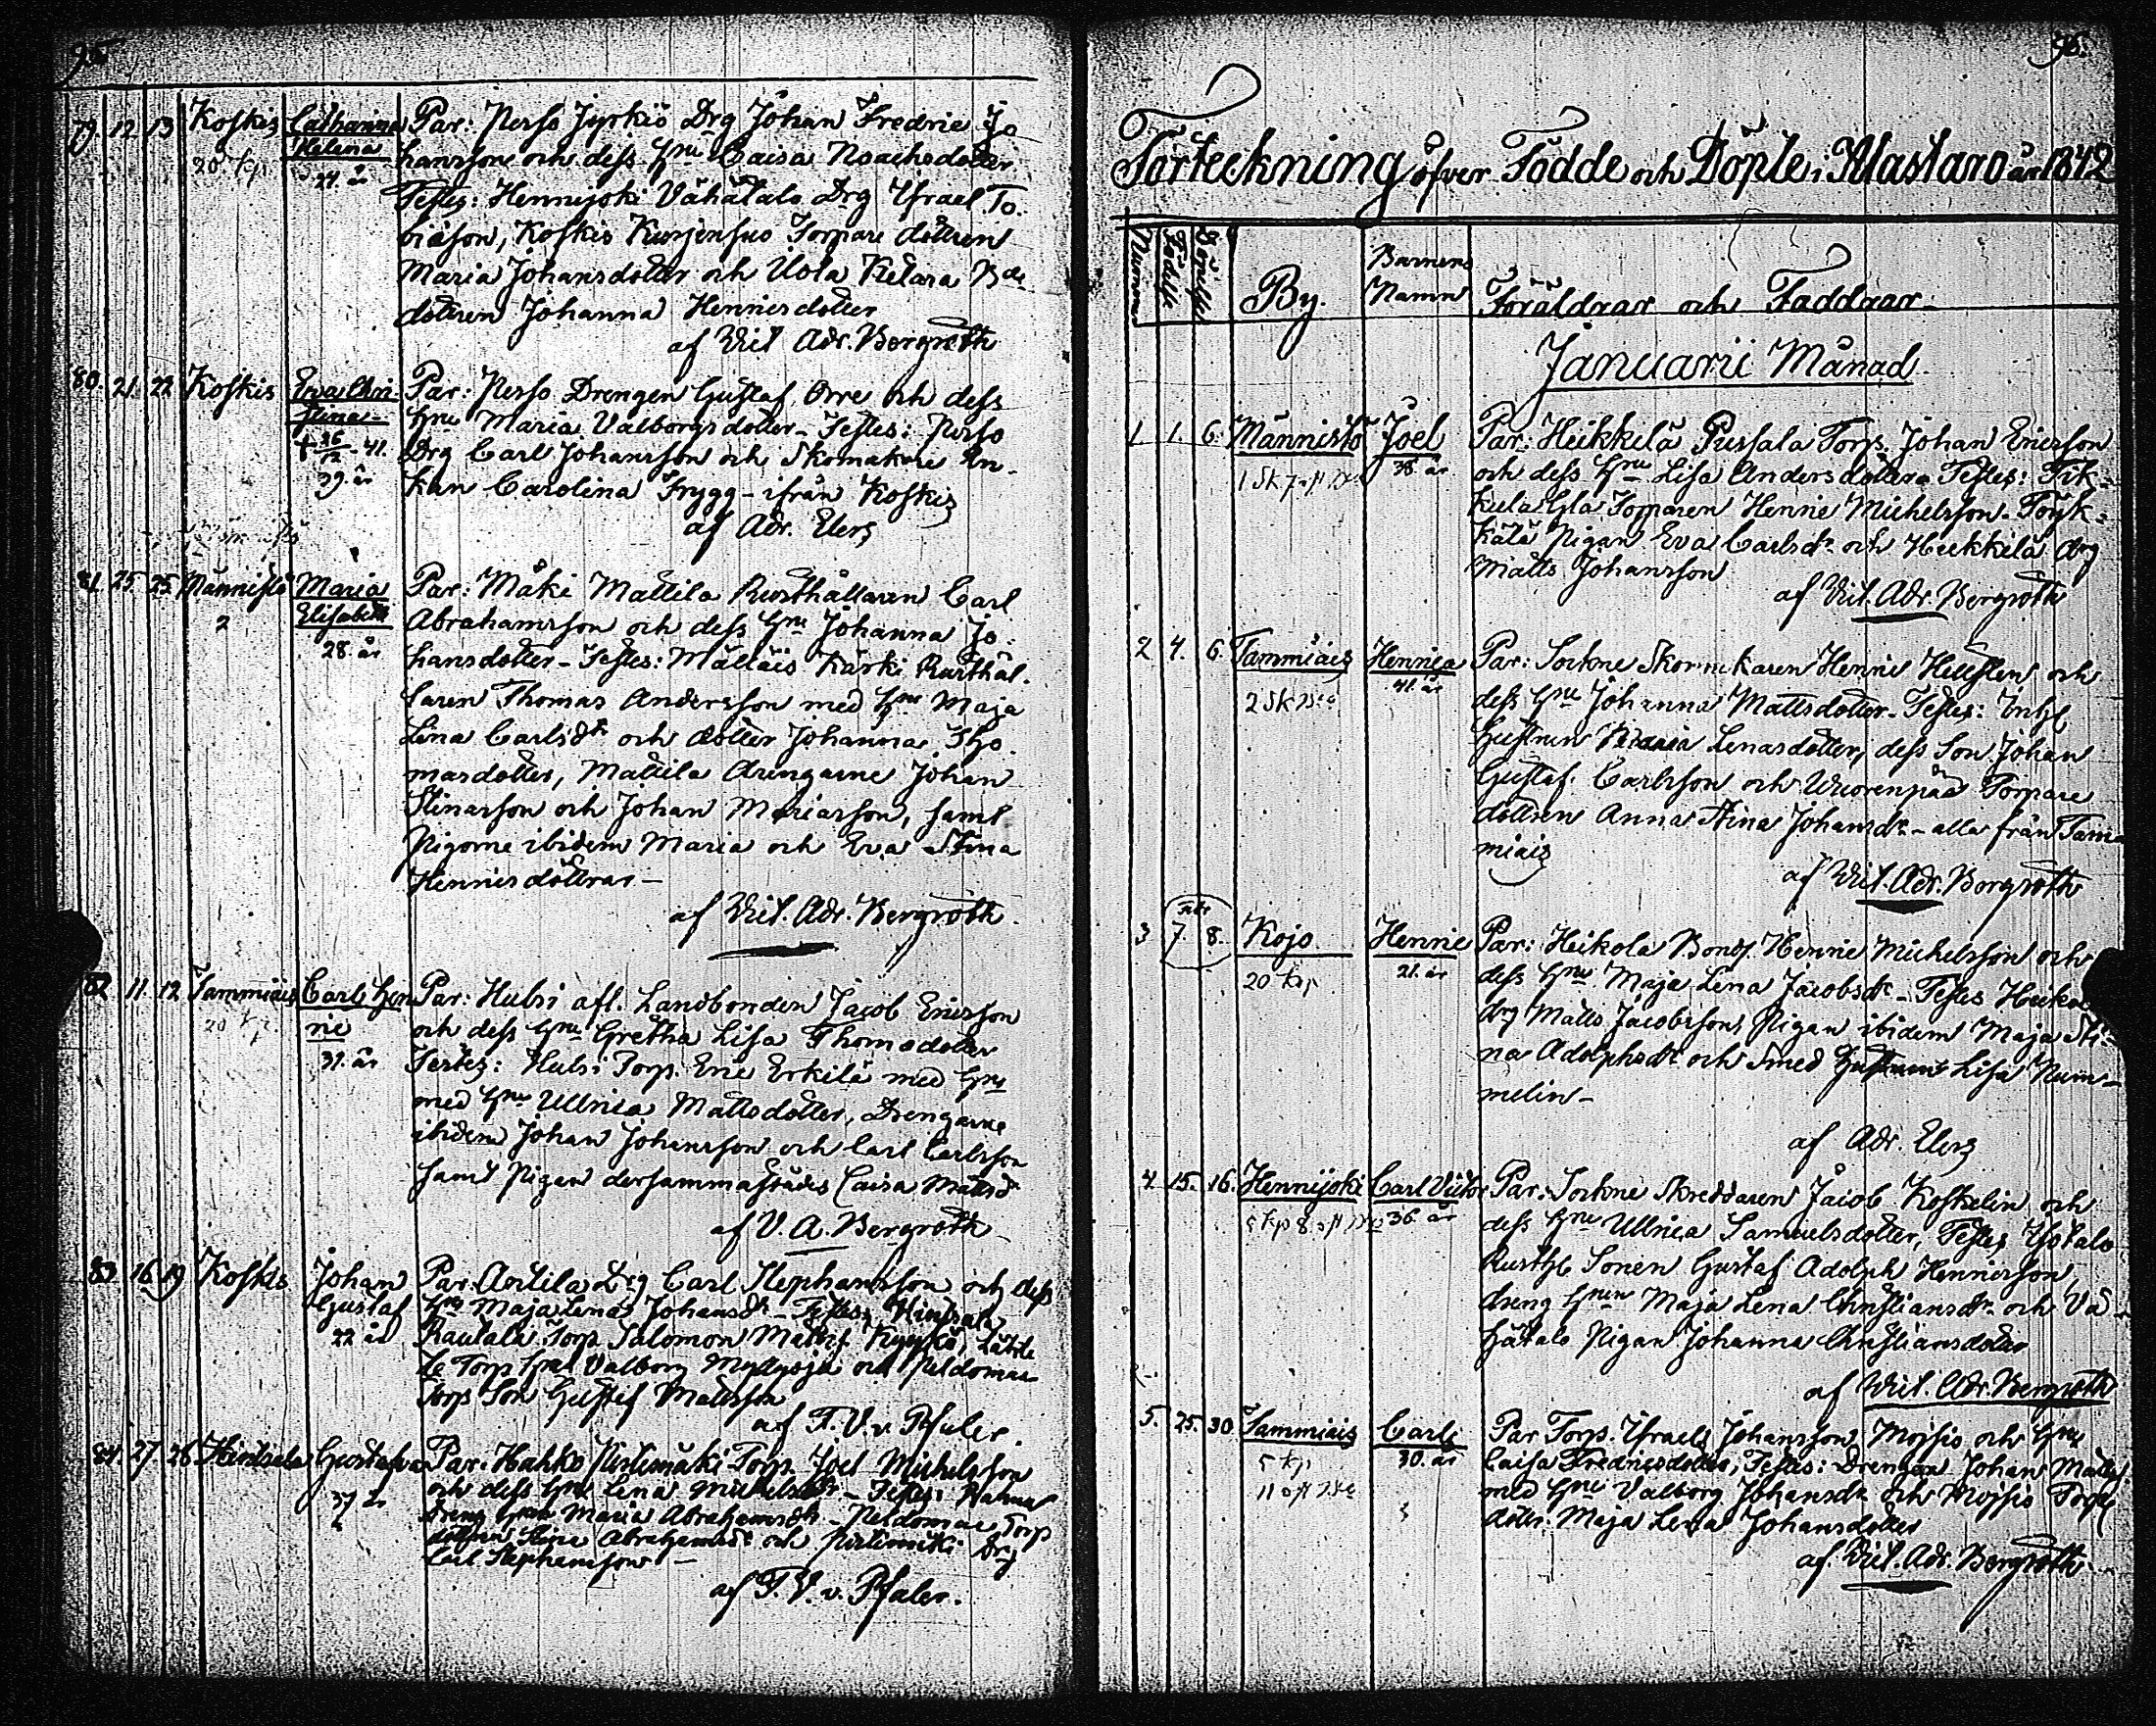 95
79. 12 13 Koskis Catharina Par: Perho Jyrkiö Drg Johan Fredric Jo
20 kp. Helena hansson och dess Hru Caisa Noachsdotter
24. år Testes: Hennijoki Vähätalo Drg Israel To
biasson, Koskis Kurjensuo Torpare dottren
Maria Johansdotter och Uola Ketara Bde
dottren Johanna Henricsdotter
af Vict. Adr. Bergroth
80. 21. 22 Koskis Eva Chri Par: Perho Drengen Gustaf Orre och dess
stina Hru Maria Valborgsdotter - Testes: Perho
† 26/12 41. Drg Carl Johansson och Skomakare En-
39. år kan Carolina Frygg - ifrån Koskis
af Adr. Elers
81. 25 25 Männistö Maria Par: Mäki Mattila Rusthållaren Carl
2 Elisabeth Abrahamsson och dess Hru Johanna Jo-
28. år hansdotter - Testes: Mälläis Kärki Rusthål-
laren Thomas Andersson med Hru Maja
Lena Carlsdr och dotter Johanna Tho
masdotter, Mattila drengarne Johan
Stinasson och Johan Mariasson, samt
Pigorne ibidem Maria och Eva Stina
Henricsdöttrar -
af Vict. Adr. Bergroth.
82 11. 12 Tammiais Carl Hen Par: Hubri afl. Landbonden Jacob Ericsson
20 kp. ric och dess Hru Gretha Lisa Thomsdotter
31. år Testes: Hubri Torp. Eric Erkilä med Hru
med Hru Ullrica Mattsdotter, Drengarne
ibidem Johan Johansson och Carl Carlsson
samt Pigan dersammastädes Caisa Mattsd
af V. A. Bergroth
83 16 19 Koskis Johan Par. Anttila Drg Carl Stephansson och dess
Gustaf Hru Maja Lena Johansdr Testes: Hintsala
22 år Rautala Torp Salomon Matts.
Torp Hru Valborg och Peldomas
Torp Son Gustaf Mattsson
af F. V. v. Pfaler.
84. 27. 28 Hintsala Gustava Par: Hahko Pirtimäki Torp. Joel Michelsson
37 år och dess Hru Lena Michelsdr - Testes:
Dreng Hrun Maria Abrahamsdr - Peldomas Torp
dottren Stina Abrahamsdr och Pirtimäki Drg
Carl Stephansson -
af F. V. v. Pfaler.
96.
Förteckning öfver Födde och Döpte i Alastaro år 1842
Numern Födelse Döpelse By. Barnens Namn Föräldrar och Faddrar.
Januarii Månad.
1. 1. 6. Männistö Joel Par: Heikkilä Pussala Torp. Johan Ericsson
38. år och dess Hru Lisa Andersdotter Testes: Tik-
kula Torparen Henric Michelsson - Töyk-
kälä Pigan Eva Carlsdr och Heikkilä drg
Matts Johansson
af Vict. Adr. Bergroth
2 4. 6. Tammiais Henrica Par: Sockne Skomakaren Henric Hellsten och
41. år dess Hru Johanna Mattsdotter - Testes: Inhs
Hustrun Maria Lenasdotter, dess Son Johan
Gustaf Carlsson och Vuorenpää Torpare
dottren Anna Stina Johansdr - alla från Tam
miais
af Vict. Adr. Bergroth
3 7. 8. Kojo Henric Par: Heikola Bonds. Henric Michelsson och
20 kp 21. år dess Hru Maja Lena Jacobsdr - Testes Heikola
drg Matts Jacobsson, Pigan ibidem Maja Sti-
na Adolphsdr och Smed Hustrun Lisa Num-
melin -
af Adr. Elers
4. 15. 16. Hennijoki Carl Victor Par: Sockne Skreddaren Jacob Koskelin och
36 år dess Hru Ullrica Samuelsdotter, Testes Isotalo
Rusth. Sonen Gustaf Adolph Henricsson,
dreng Hrun Maja Lena Christiansdr och Vä-
hätalo Pigan Johanna Christiansdotter
af Vict. Adr. Bergroth
5. 25. 30. Tammiais Carl Par Torp. Israel Johansson Moisio och Hru
5 kp 30. år Caisa Fredricsdotter, Testes: Drengen Johan Matts.
med Hru Valborg Johansdr och Moisio Torp.
dottr. Maja Lena Johansdotter
af Vict. Adr. Bergroth